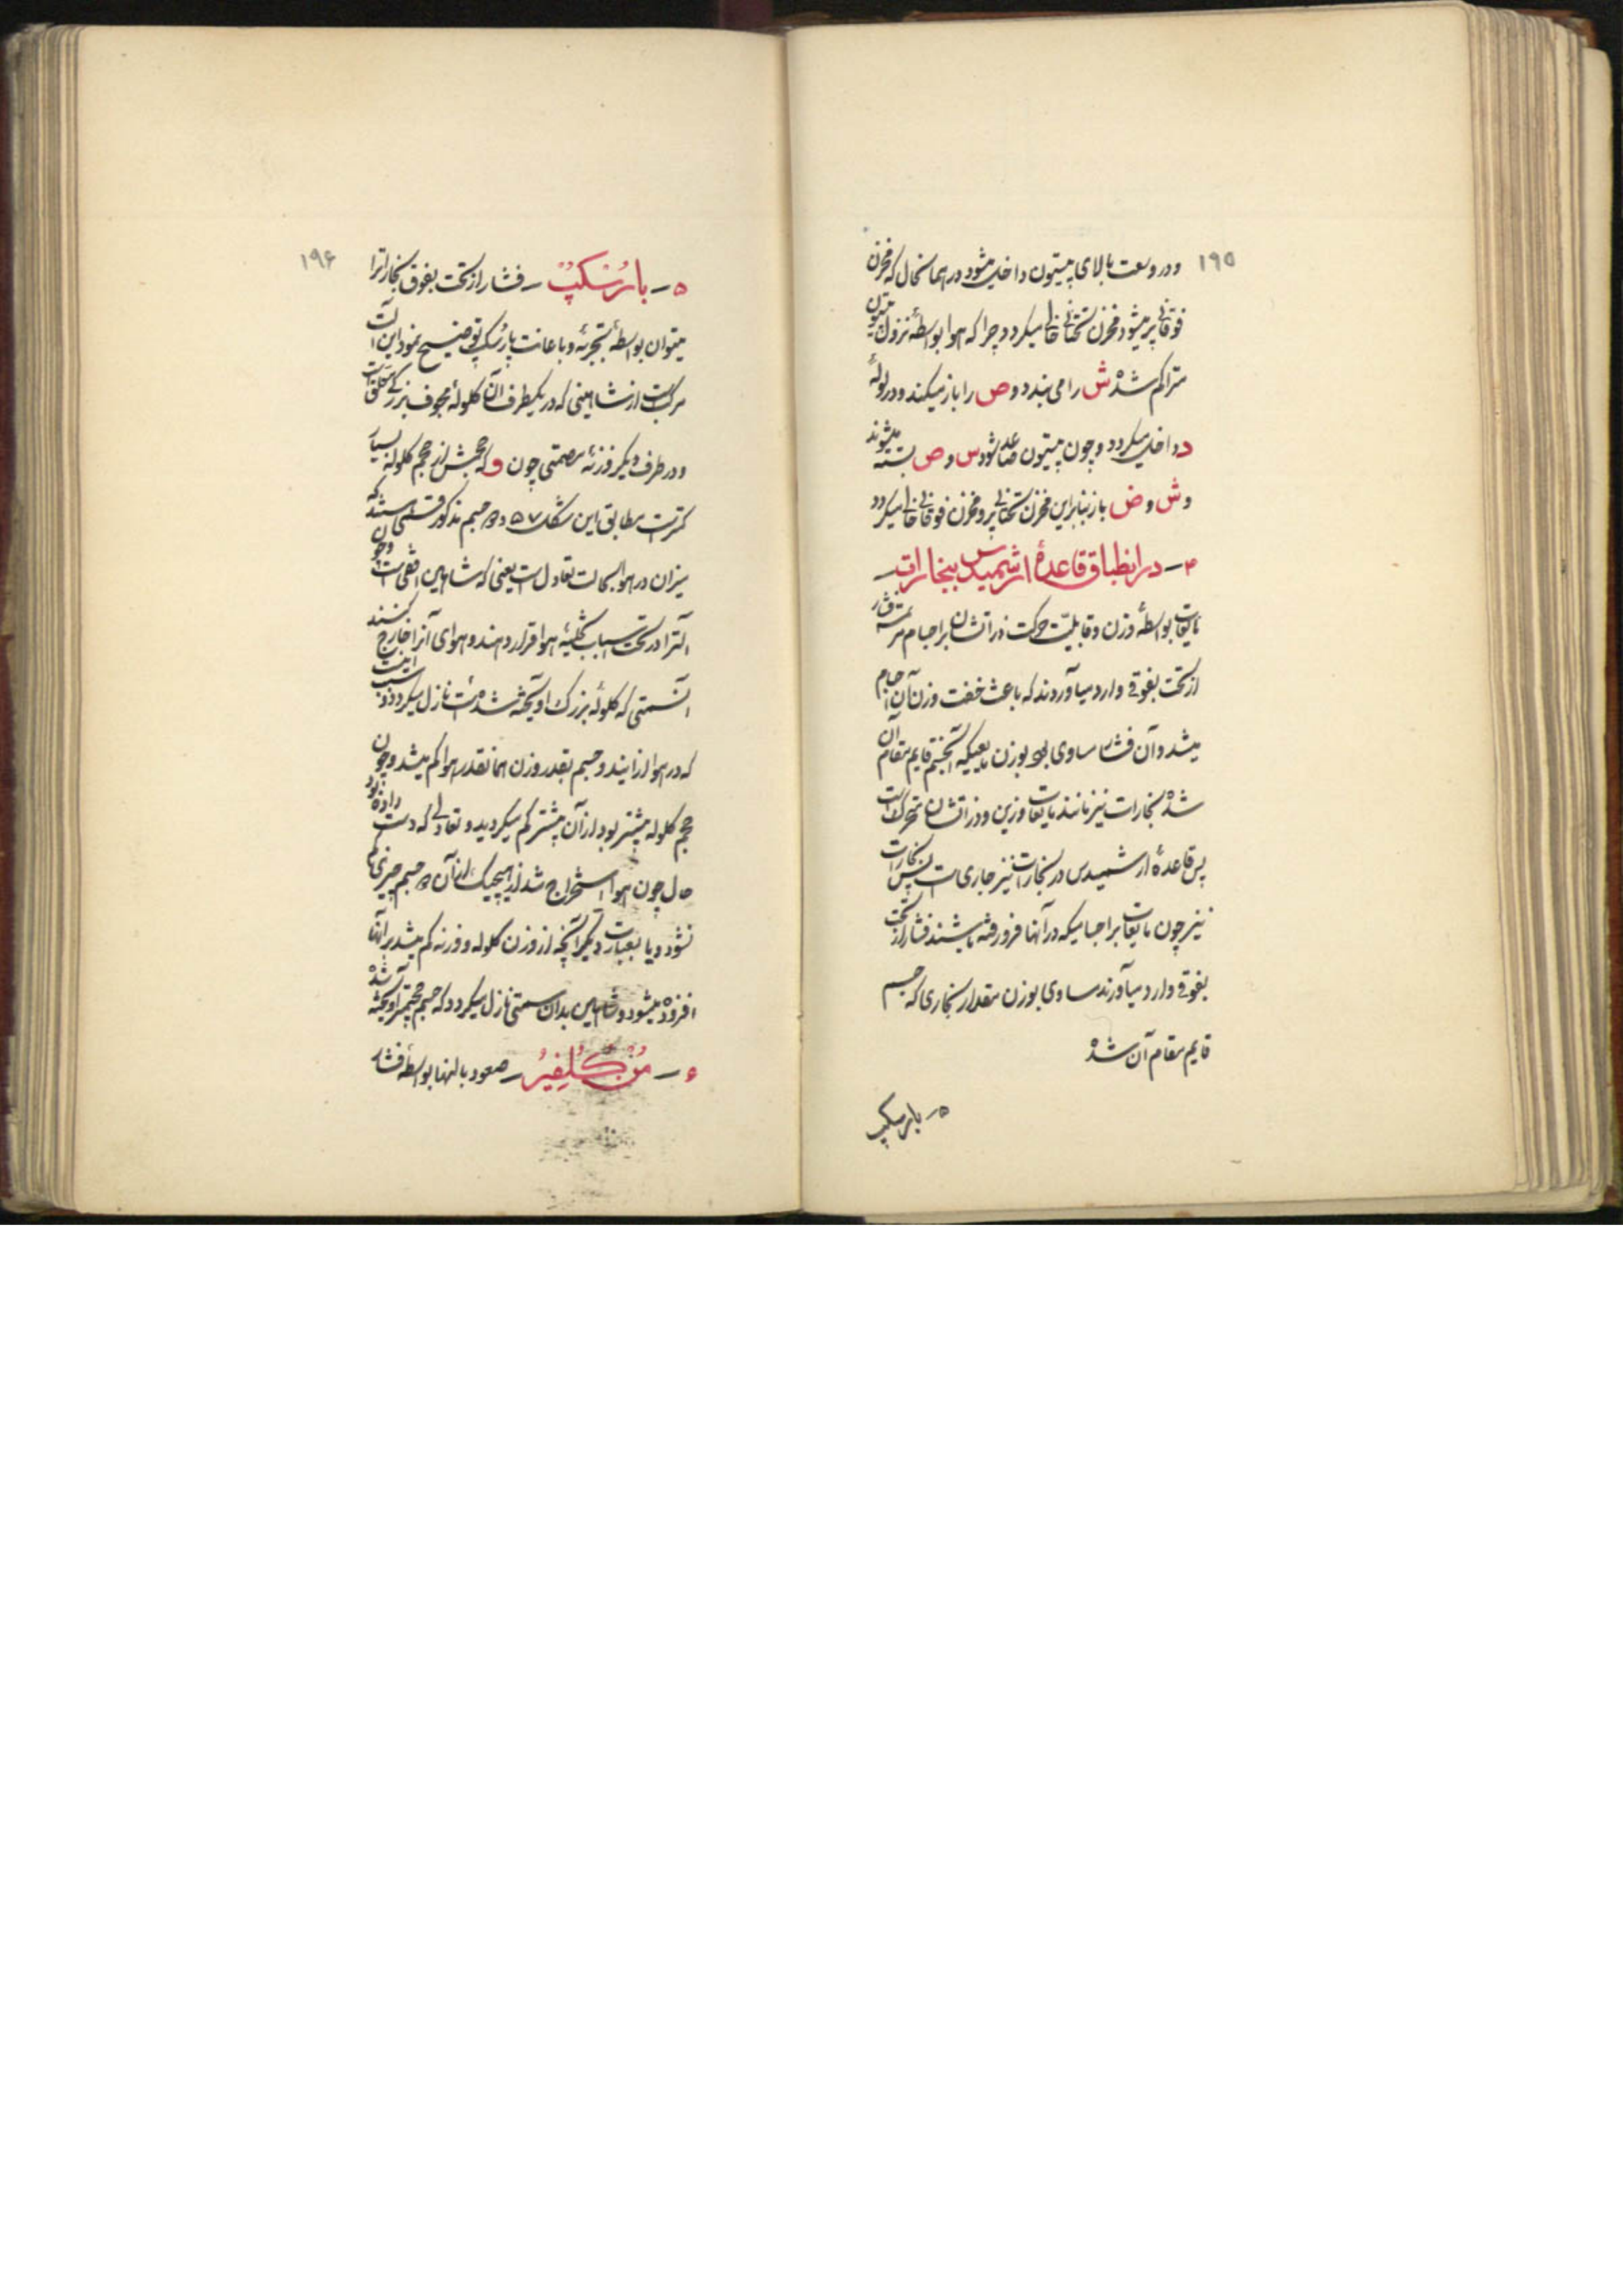 ۱۹۵
و در وسعت بالای پیستون داخل میشود در همانحال که مخزن
فوقانی پر میشود مخزن تحتانی خالی میگردد چرا که هوا بواسطهٔ نزول پیستون
متراکم شده ش را می بندد و ص را باز میکند و در لولهٔ
د داخل میگردد و چون پیستون صاعد شود س و ص بسته میشوند
و ش و ض باز بنابراین مخزن تحتانی پر و مخزن فوقانی خالی میگردد
۴ – در انطباق قاعدهٔ ارشمیدس ببخارات –
مایعات بواسطهٔ وزن و قابلیت حرکت ذراتشان بر اجسام مرتمسه فشار
از تحت بفوقی وارد میآوردند که باعث خفت وزن آن اجسام
میشد و آن فشار مساوی بود بوزن مایعیکه آنجسم قایم مقام آن
شده بخارات نیز مانند مایعات وزین و ذراتشان متحرک است
پس قاعدهٔ ارشمیدس در بخارات نیز جاری است پس بخارات
نیز چون مایعات بر اجسامیکه در آنها فرو رفته باشند فشار از تحت
بفوقی وارد میآورند مساوی بوزن مقدار بخاری که جسم
قایم مقام آن شده
۵ – بارسکپ
۱۹۶
۵ – بارُسکپ – فشار از تحت بفوق بخارات را
میتوان بواسطهٔ تجربهٔ و باعانت بارُسکپ توضیح نمود این آلت
مرکب است از شاهینی که در یکطرف آن کلولهٔ مجوف بزرگی معلق است
و در طرف دیگر وزنهٔ مصمتی چون و که حجمش از حجم کلوله بسیار
کمتر است مطابق این شکل ۵۷ دو جسم مذکور وقتیکه
میزان در هوا بحالت تعادل است یعنی که شاهین افقی است و چون
آلترا در تحت اسباب تخلیهٔ هوا قرار دهند و هوای آنرا خارج کنند
آنسمتی که کلولهٔ بزرگ آویخته شده است نازل میگردد سبب اینست
که در هوا از ایندو جسم بقدر وزن همانقدر هوا کم میشد و چون
حجم کلوله بیشتر بود از آن بیشتر کم میگردید و تعادلی که دست داده بود
حال چون هوا استخراج شد از هیچیک از آن دو جسم چیزی کم
نشود و یا بعبارت دیگر آنچه از وزن کلوله و وزنه کم میشد بر آنها
افزوده میشود و شاهین بدان سمتی نازل میگردد که جسم حجیمتر آویخته شده
۶ – مُن گُلفیرُ – صعود بالنها بواسطهٔ فشار